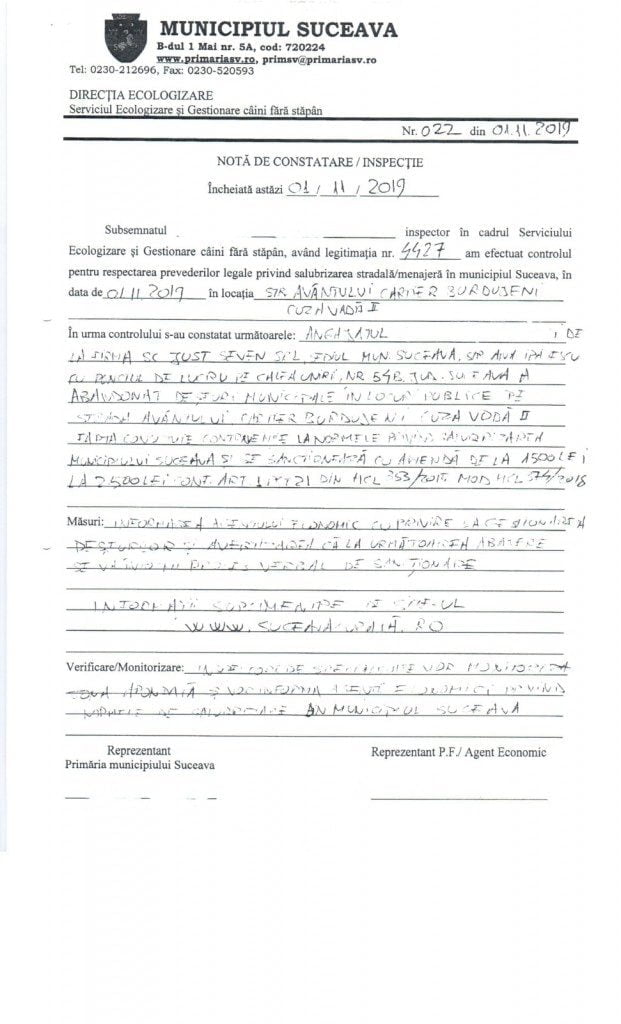 MUNICIPIUL SUCEAVA
B-dul 1 Mai nr. 5A, cod: 720224
www.primariasv.ro, primsv@primariasv.ro
Tel: 0230-212696, Fax: 0230-520593
DIRECȚIA ECOLOGIZARE
Serviciul Ecologizare și Gestionare câini fără stăpân
Nr. 022 din 01.11.2019
NOTĂ DE CONSTATARE / INSPECȚIE
Încheiată astăzi 01 / 11 / 2019
Subsemnatul inspector în cadrul Serviciului
Ecologizare și Gestionare câini fără stăpân, având legitimația nr. 4427 am efectuat controlul
pentru respectarea prevederilor legale privind salubrizarea stradală/menajeră în municipiul Suceava, în
data de 01.11.2019 în locația STR AVÂNTULUI CARTIER BURDUJENI
CUZA VODĂ II
În urma controlului s-au constatat următoarele: ANGAJATUL DE
LA FIRMA SC JUST SEVEN SRL MUN. SUCEAVA, STR
CU PUNCTUL DE LUCRU PE CALEA UNIRII, NR 54B, JUD. SUCEAVA A
ABANDONAT DEȘEURI MUNICIPALE ÎN LOCURI PUBLICE PE
STRADA AVÂNTULUI CARTIER BURDUJENI CUZA VODĂ II
FAPTA CONTRAVENȚIE LA NORMELE PRIVIND SALUBRIZAREA
MUNICIPIULUI SUCEAVA ȘI SE SANCȚIONEAZĂ CU AMENDĂ DE LA 1500 LEI
LA 2500 LEI CONF. ART DIN HCL 353/2015 MOD HCL 374/2018
Măsuri: INFORMAREA AGENTULUI ECONOMIC CU PRIVIRE LA GESTIONAREA
DEȘEURILOR ȘI AVERTIZAREA CĂ LA URMĂTOAREA ABATERE
SE VA PROCES VERBAL DE SANCȚIONARE
INFORMAȚII SUPLIMENTARE PE SITE-UL
WWW.SUCEAVACURATĂ.RO
Verificare/Monitorizare: INSPECTORII DE SPECIALITATE VOR MONITORIZA
ZONA ȘI VOR INFORMA AGENȚII ECONOMICI PRIVIND
NORMELE DE SALUBRIZARE ÎN MUNICIPIUL SUCEAVA
Reprezentant Reprezentant P.F./ Agent Economic
Primăria municipiului Suceava